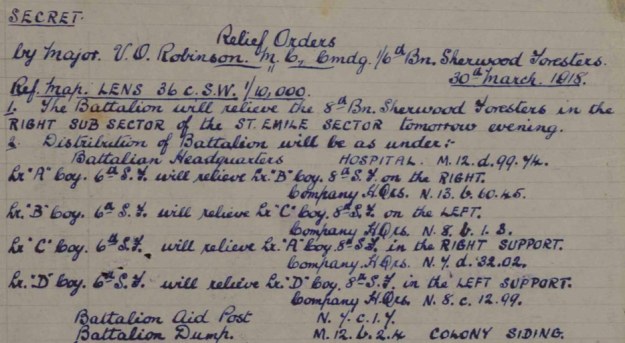 SECRET.
Relief Orders
by Major. V.O. Robinson. M.C., Cmdg. 1/6th Bn. Sherwood Foresters.
30th March. 1918.
Ref. Map. LENS 36 c. S.W. 1/10,000.
1. The Battalion will relieve the 8th Bn. Sherwood Foresters in the
RIGHT SUB SECTOR of the ST. EMILE SECTOR tomorrow evening.
2. Distribution of Battalion will be as under:-
Battalian Headquarters HOSPITAL. M.12.d.99.74.
Lr "A" Coy. 6th S.F. will relieve Lr "B" Coy. 8th S.F. on the RIGHT.
Company H.Qrs. N.13.b.60.45.
Lr. "B" Coy. 6th S.F. will relieve Lr "C" Coy. 8th S.F. on the LEFT.
Company H.Qrs. N.8.b.1.3.
Lr "C" Coy. 6th S.F. will relieve Lr. "A" Coy. 8th S.F. in the RIGHT SUPPORT.
Company H.Qrs. N.7.d.32.02.
Lr. "D" Coy. 6th S.F. will relieve Lr. "D" Coy. 8th S.F. in the LEFT SUPPORT.
Company H.Qrs. N.8.c.12.99.
Battalion Aid Post N.7.c.1.7.
Battalion Dump. M.12.b.2.4 COLONY SIDING.